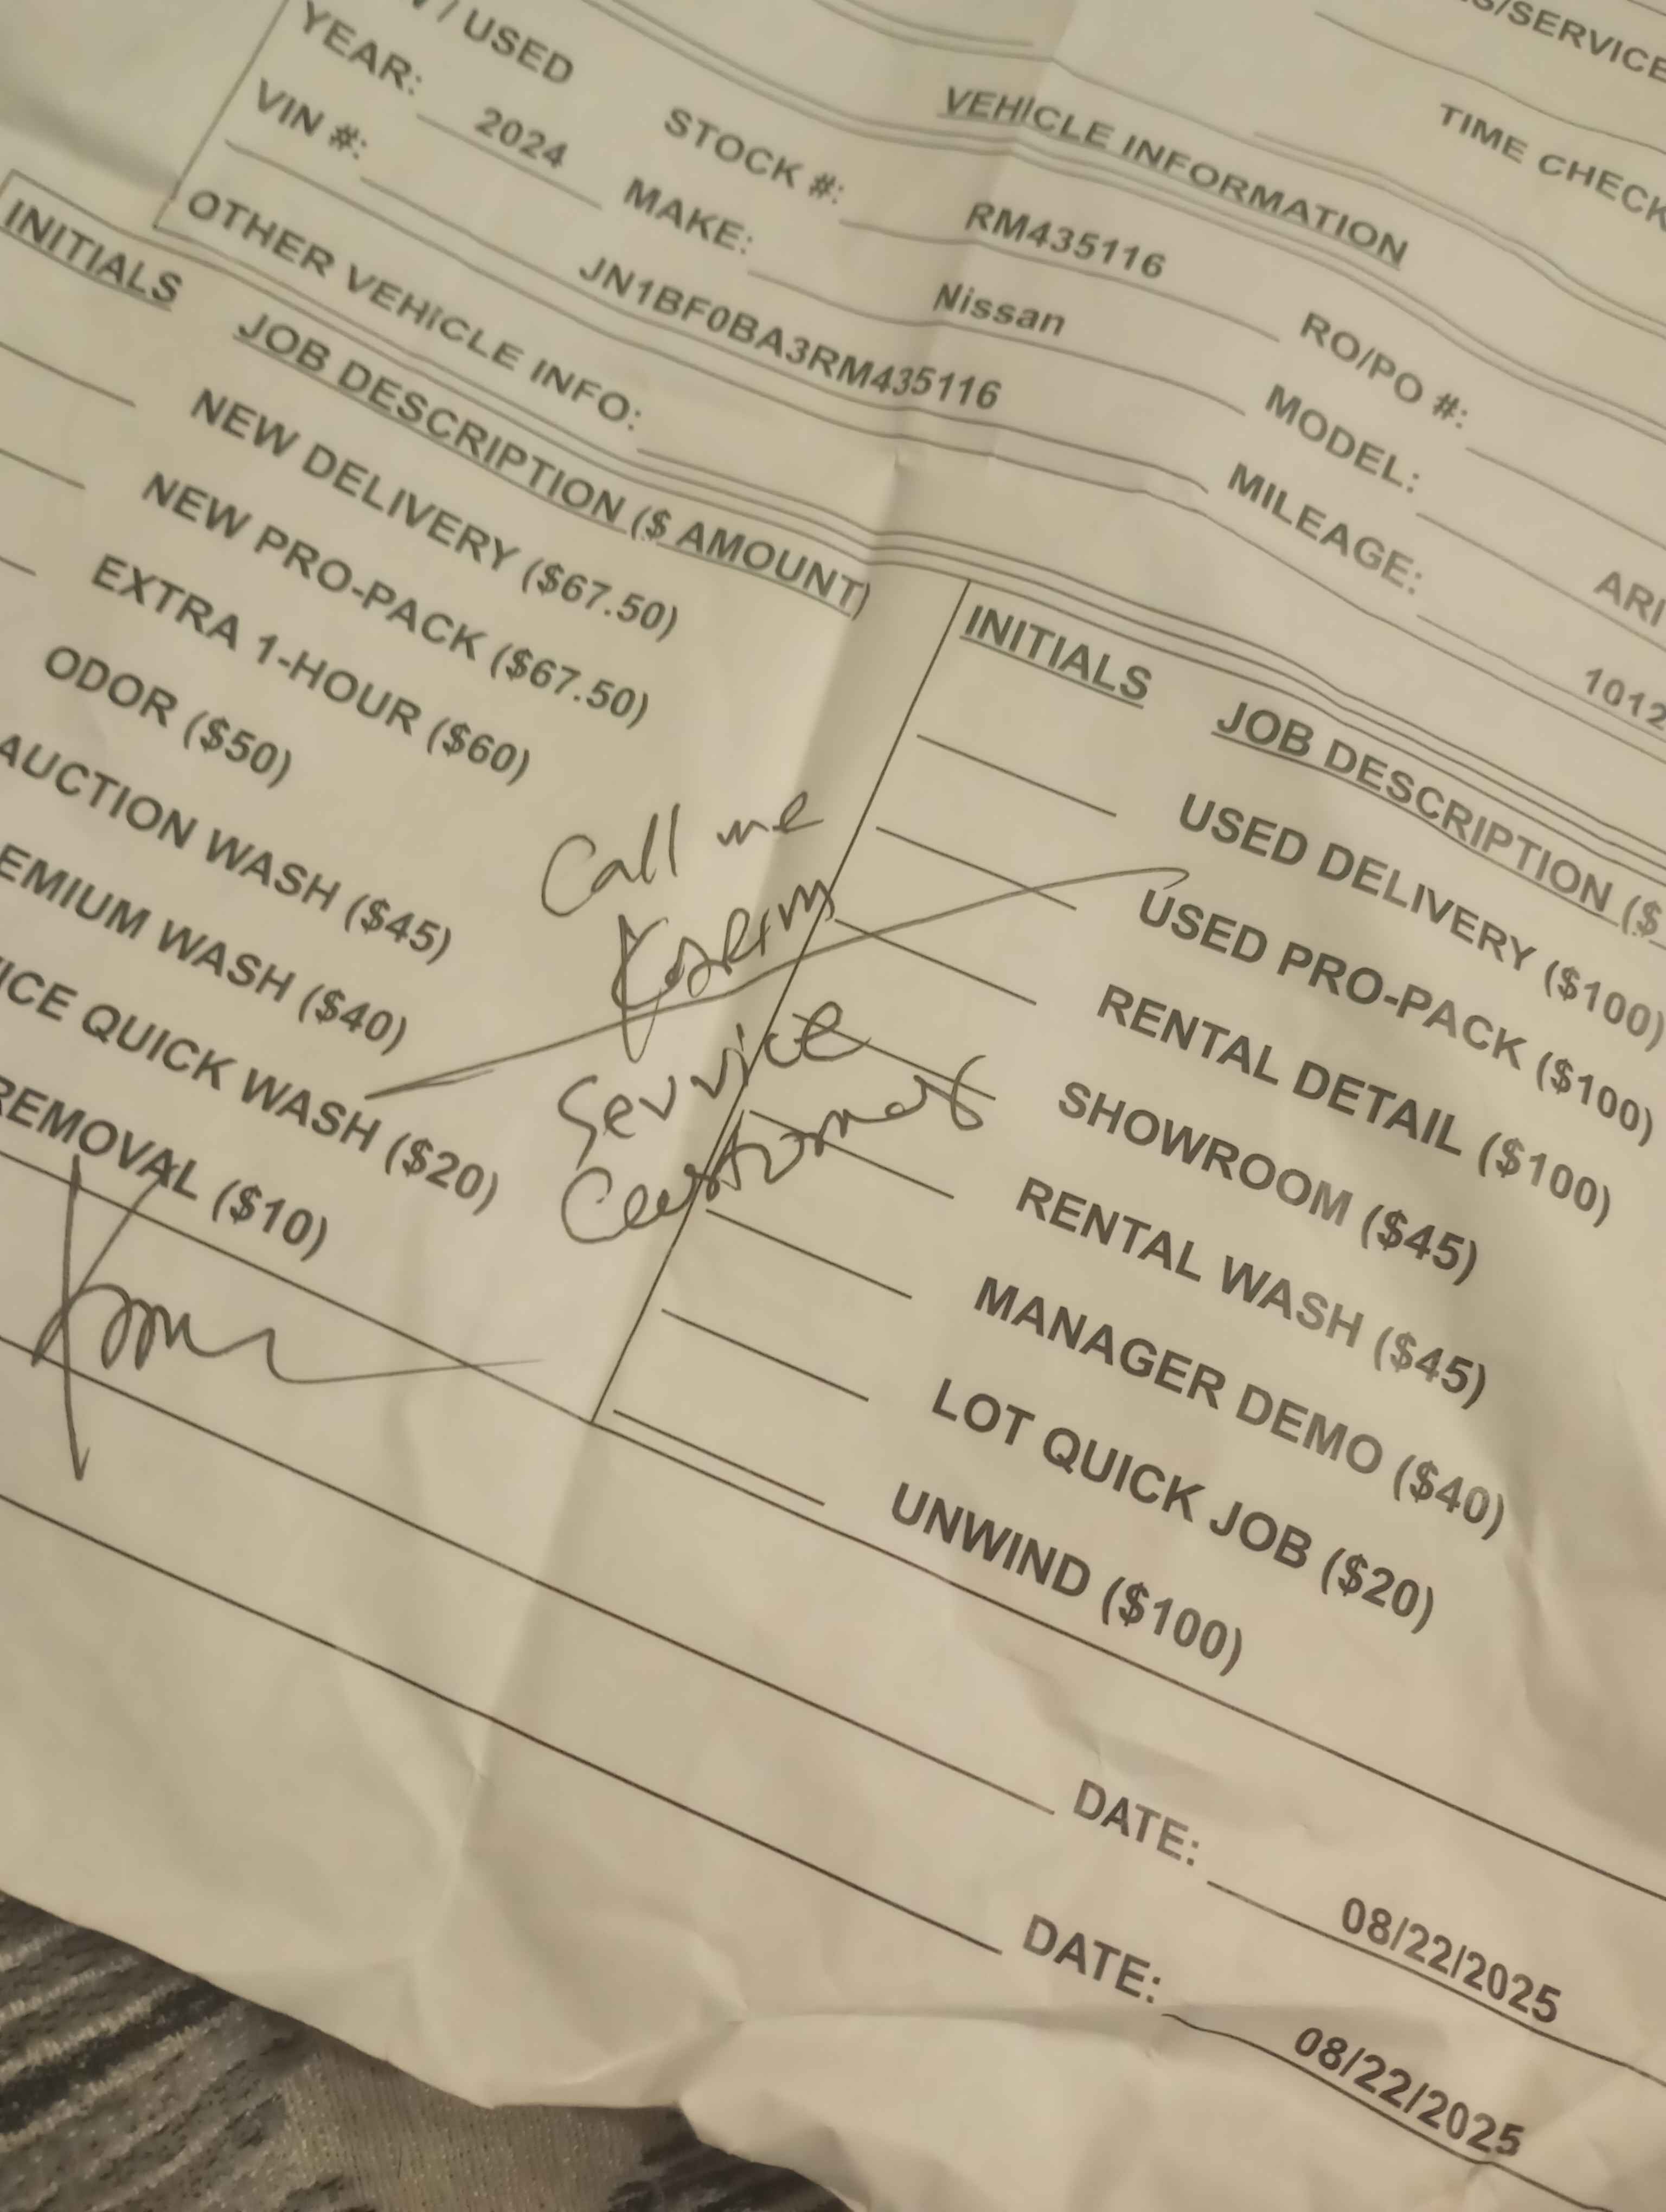 S/SERVICE
TIME CHECK
/ USED
VEHICLE INFORMATION
STOCK #: RM435116 RO/PO #:
YEAR: 2024 MAKE: Nissan MODEL: ARI
VIN #: JN1BF0BA3RM435116 MILEAGE: 1012
OTHER VEHICLE INFO:
INITIALS JOB DESCRIPTION ($ AMOUNT)
NEW DELIVERY ($67.50)
NEW PRO-PACK ($67.50)
EXTRA 1-HOUR ($60)
ODOR ($50)
AUCTION WASH ($45)
EMIUM WASH ($40)
ICE QUICK WASH ($20)
REMOVAL ($10)
Call me
Service
Customer
INITIALS JOB DESCRIPTION ($
USED DELIVERY ($100)
USED PRO-PACK ($100)
RENTAL DETAIL ($100)
SHOWROOM ($45)
RENTAL WASH ($45)
MANAGER DEMO ($40)
LOT QUICK JOB ($20)
UNWIND ($100)
DATE: 08/22/2025
DATE: 08/22/2025